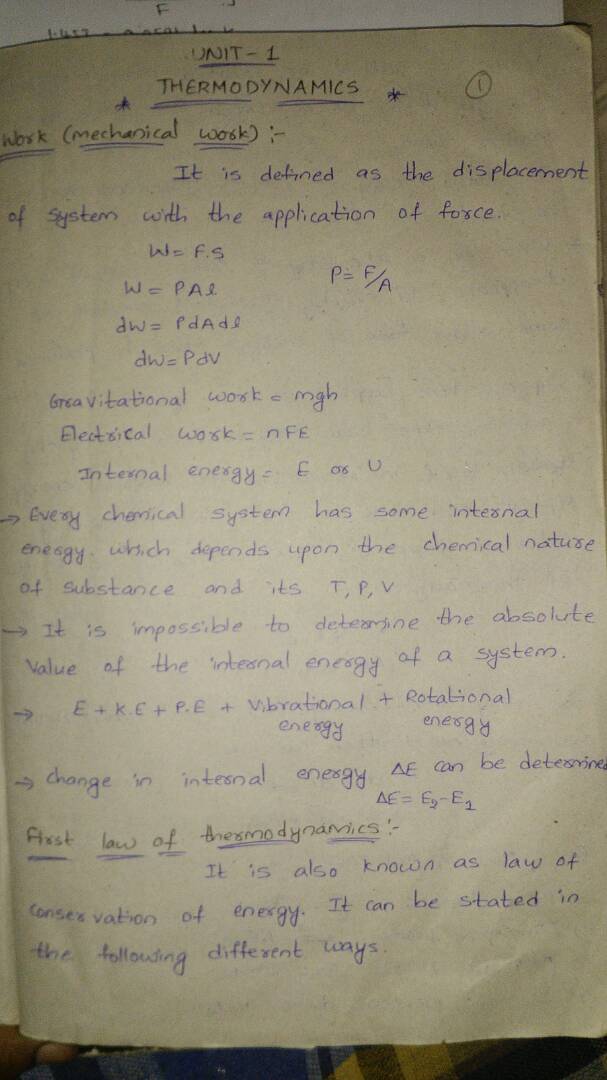 F
UNIT - 1
* THERMODYNAMICS * 1
Work (mechanical work) :-
It is defined as the displacement
of system with the application of force.
W = F.S
W = PAl P = F/A
dW = PdAdl
dW = PdV
Gravitational work = mgh
Electrical work = nFE
Internal energy = E or U
→ Every chemical system has some internal
energy. which depends upon the chemical nature
of substance and its T, P, V
→ It is impossible to determine the absolute
Value of the internal energy of a system.
→ E + K.E + P.E + Vibrational + Rotational
energy energy
→ change in internal energy ΔE can be determined
ΔE = E2 - E1
First law of thermodynamics :-
It is also known as law of
Conservation of energy. It can be stated in
the following different ways.